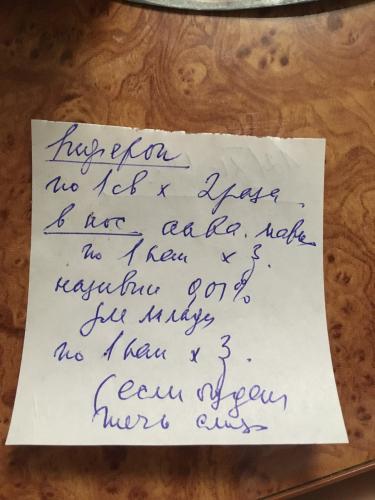 Виферон
по 1 св х 2 раза
в нос аква. марис
по 1 кап х 3.
називин 0,01%
для младен
по 1 кап х 3.
(если будет
течь слизь